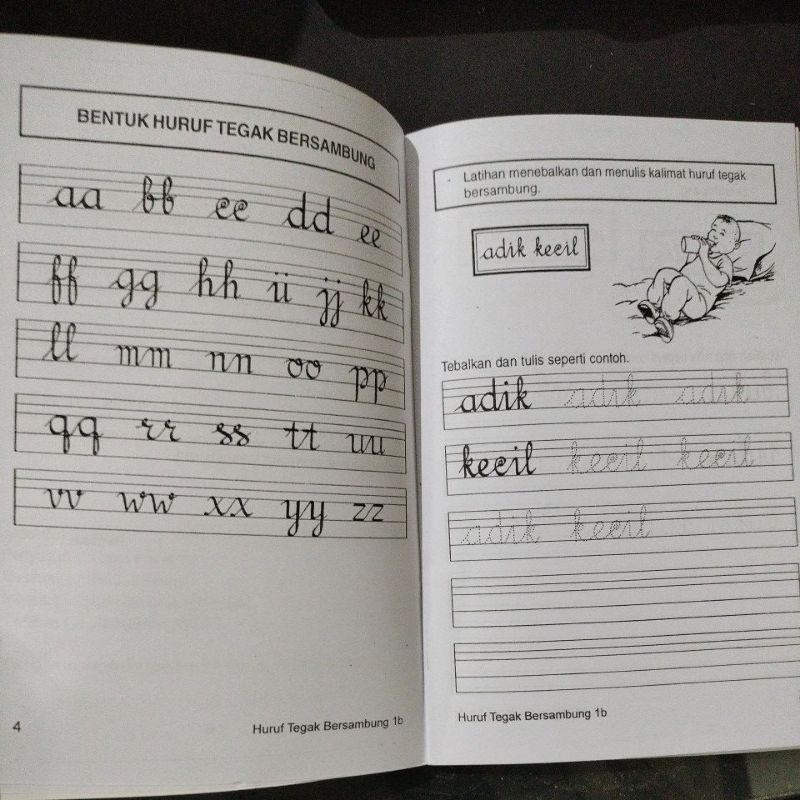 BENTUK HURUF TEGAK BERSAMBUNG
aa bb cc dd ee
ff gg hh ii jj kk
ll mm nn oo pp
qq rr ss tt uu
vv ww xx yy zz
4
Huruf Tegak Bersambung 1b
- Latihan menebalkan dan menulis kalimat huruf tegak
bersambung.
adik kecil
Tebalkan dan tulis seperti contoh.
adik adik adik
kecil kecil kecil
adik kecil
Huruf Tegak Bersambung 1b